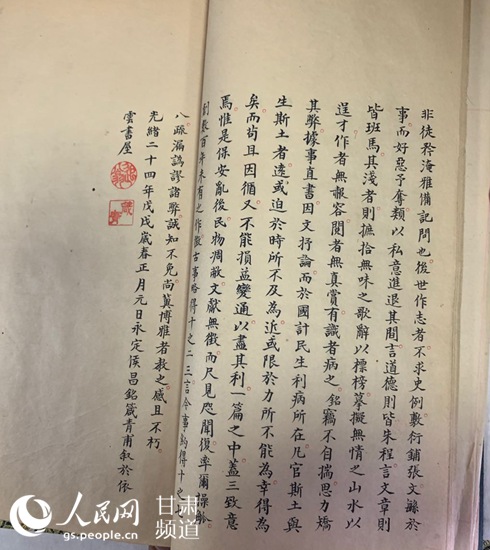 非徒矜淹雅備記問也後世作志者不求史例敷衍鋪張文於
事而好惡予奪類以私意進退其間言道德則皆朱程言文章則
皆班馬其淺者則摭拾無味之歌辭以標榜摹擬無情之山水以
逞才作者無赧容閱者無真賞有識者病之銘竊不自揣思力矯
其弊據事直書因文抒論而於國計民生利病所在凡官斯土與
生斯土者遠或迫於時所不及為近或限於力所不能為幸得為
矣而苟且因循又不能損益變通以盡其利一篇之中蓋三致意
焉惟是保安亂後民物凋敝文獻無徵而尺見咫聞復率爾操觚
創數百年未有之作徵古事略得十之二三言今事約得十之七
八疏漏譌謬諸弊誠知不免尚冀博雅者教之感且不朽
光緒二十四年戊戌歲春正月元日永定侯昌銘箴青甫叙於依
雲書屋
人民网 甘肃频道
gs.people.cn